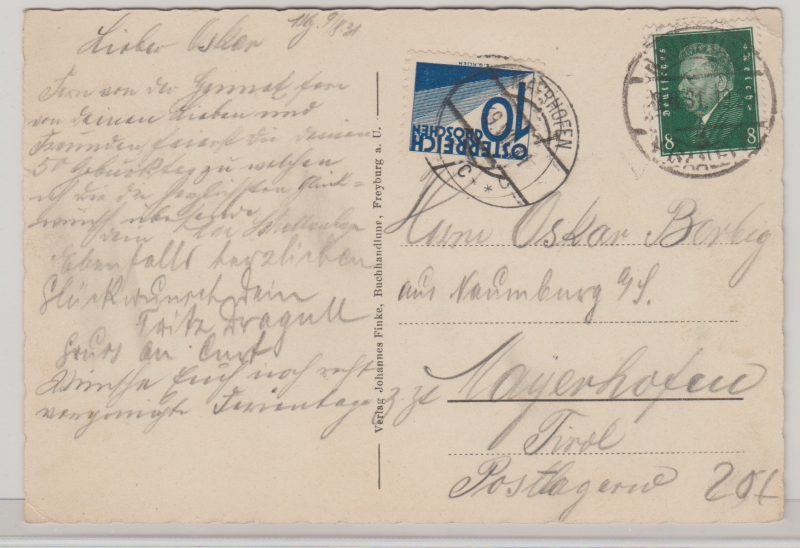 Lieber Oskar
Fern von der Heimat, fern
von deinen Lieben und
Freunden feierst du deinen
50 Geburtstag zu welchen
ich dir die herzlichsten Glück-
wünsch
dein
Ebenfalls herzlichen
Glückwunsch Dein
Fritz Dragull
Gruss an Curt
Wünsche Euch noch recht
vergnügte Ferientage
Verlag Johannes Finke, Buchhandlung, Freyburg a. U.
10
ÖSTERREICH
GROSCHEN
MAYERHOFEN
Deutsches Reich
8 8
Herrn Oskar Berbig
aus Naumburg a/S.
z. Zt. Mayerhofen
Tirol
Postlagernd